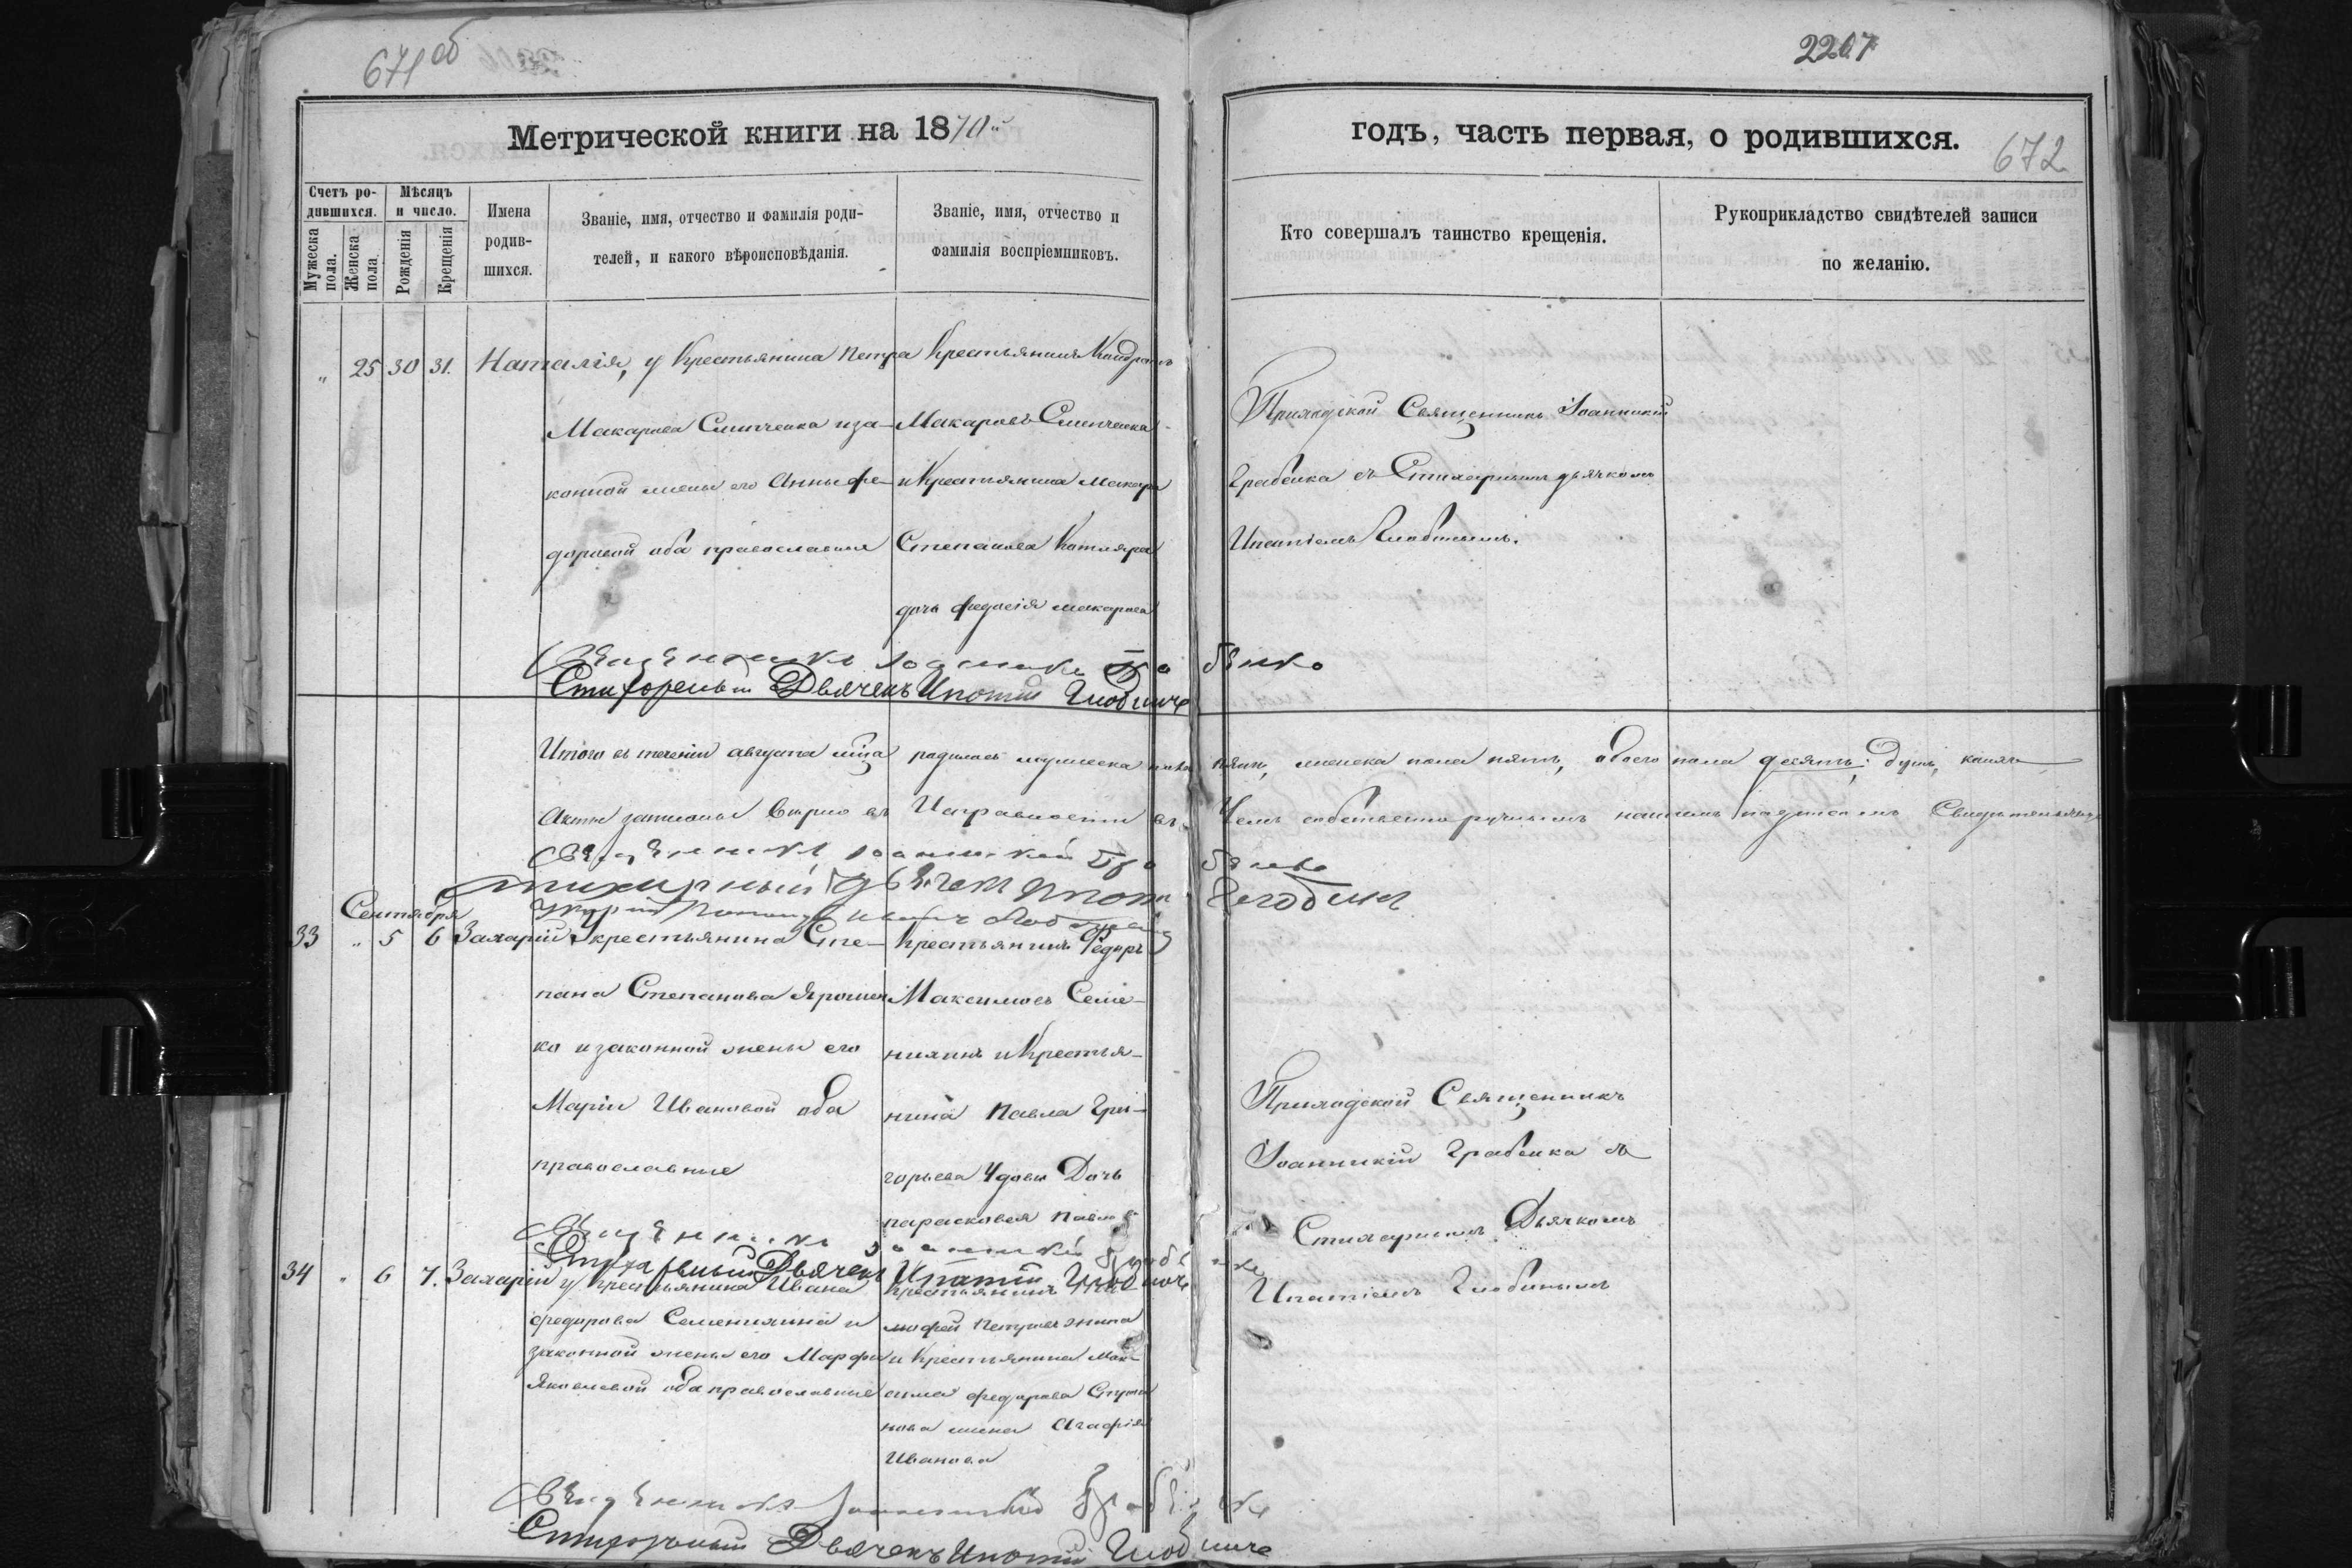 671 об
2207
672
Метрической книги на 1870й
годъ, часть первая, о родившихся.
Счетъ ро-
дившихся.
Мужеска пола.
Женска пола.
Мѣсяцъ
и число.
Рожденія
Крещенія
Имена
родив-
шихся.
Званіе, имя, отчество и фамилія роди-
телей, и какого вѣроисповѣданія.
Званіе, имя, отчество и
фамилія воспріемниковъ.
Кто совершалъ таинство крещенія.
Рукоприкладство свидѣтелей записи
по желанію.
" 25 30 31. Наталія,
у Крестьянина Петра
Макарова Слипченка и за-
конной жены его Анны Фе-
доровой оба православные
Крестьянинъ Кондратъ
Макаровъ Слипченка
и Крестьянина Макара
Степанова Котляра
дочь Федосія Макарова
Приходской Священникъ Іоанникій
Грабенка съ Стихарнымъ дьячкомъ
Ипатіемъ Глобинымъ.
Священникъ Іоанникій Грабенко
Стихарный Дьячекъ Ипатій
Итого въ теченіи августа мѣсяца родилось мужеска пола пять, женска пола пять, обоего пола десять душъ,
Акты записаны вѣрно въ Исправности въ
Чемъ собственноручнымъ нашимъ подписомъ Свидѣтельствуемъ
Священникъ Іоанникій Грабенко
Стихарный дьячекъ Ипатій
Сентября
33 " 5 6 Захарій
У крестьянина Сте-
пана Степанова Ярошен
ко и законной жены его
Маріи Ивановой оба
православные
Крестьянинъ Федоръ
Максимовъ Семе-
нихинъ и Крестья-
нина Павла Гри-
горьева Удовы Дочь
Парасковея Павлова
Приходской Священникъ
Іоанникій Грабенка съ
Стихарнымъ Дьячкомъ
Ипатіемъ Глобинымъ
Священникъ Іоанникій Грабенко
Стихарный Дьячекъ Ипатій
34 " 6 7. Захарій
у Крестьянина Ивана
Федорова Семенихина и
законной жены его Марфы
Яковлевой оба православные
Крестьянинъ Ти-
мофей
и Крестьянина Мак-
сима Федорова
жена Агафія
Иванова
Священникъ Іоанникій Грабенко
Стихарный Дьячекъ Ипатій